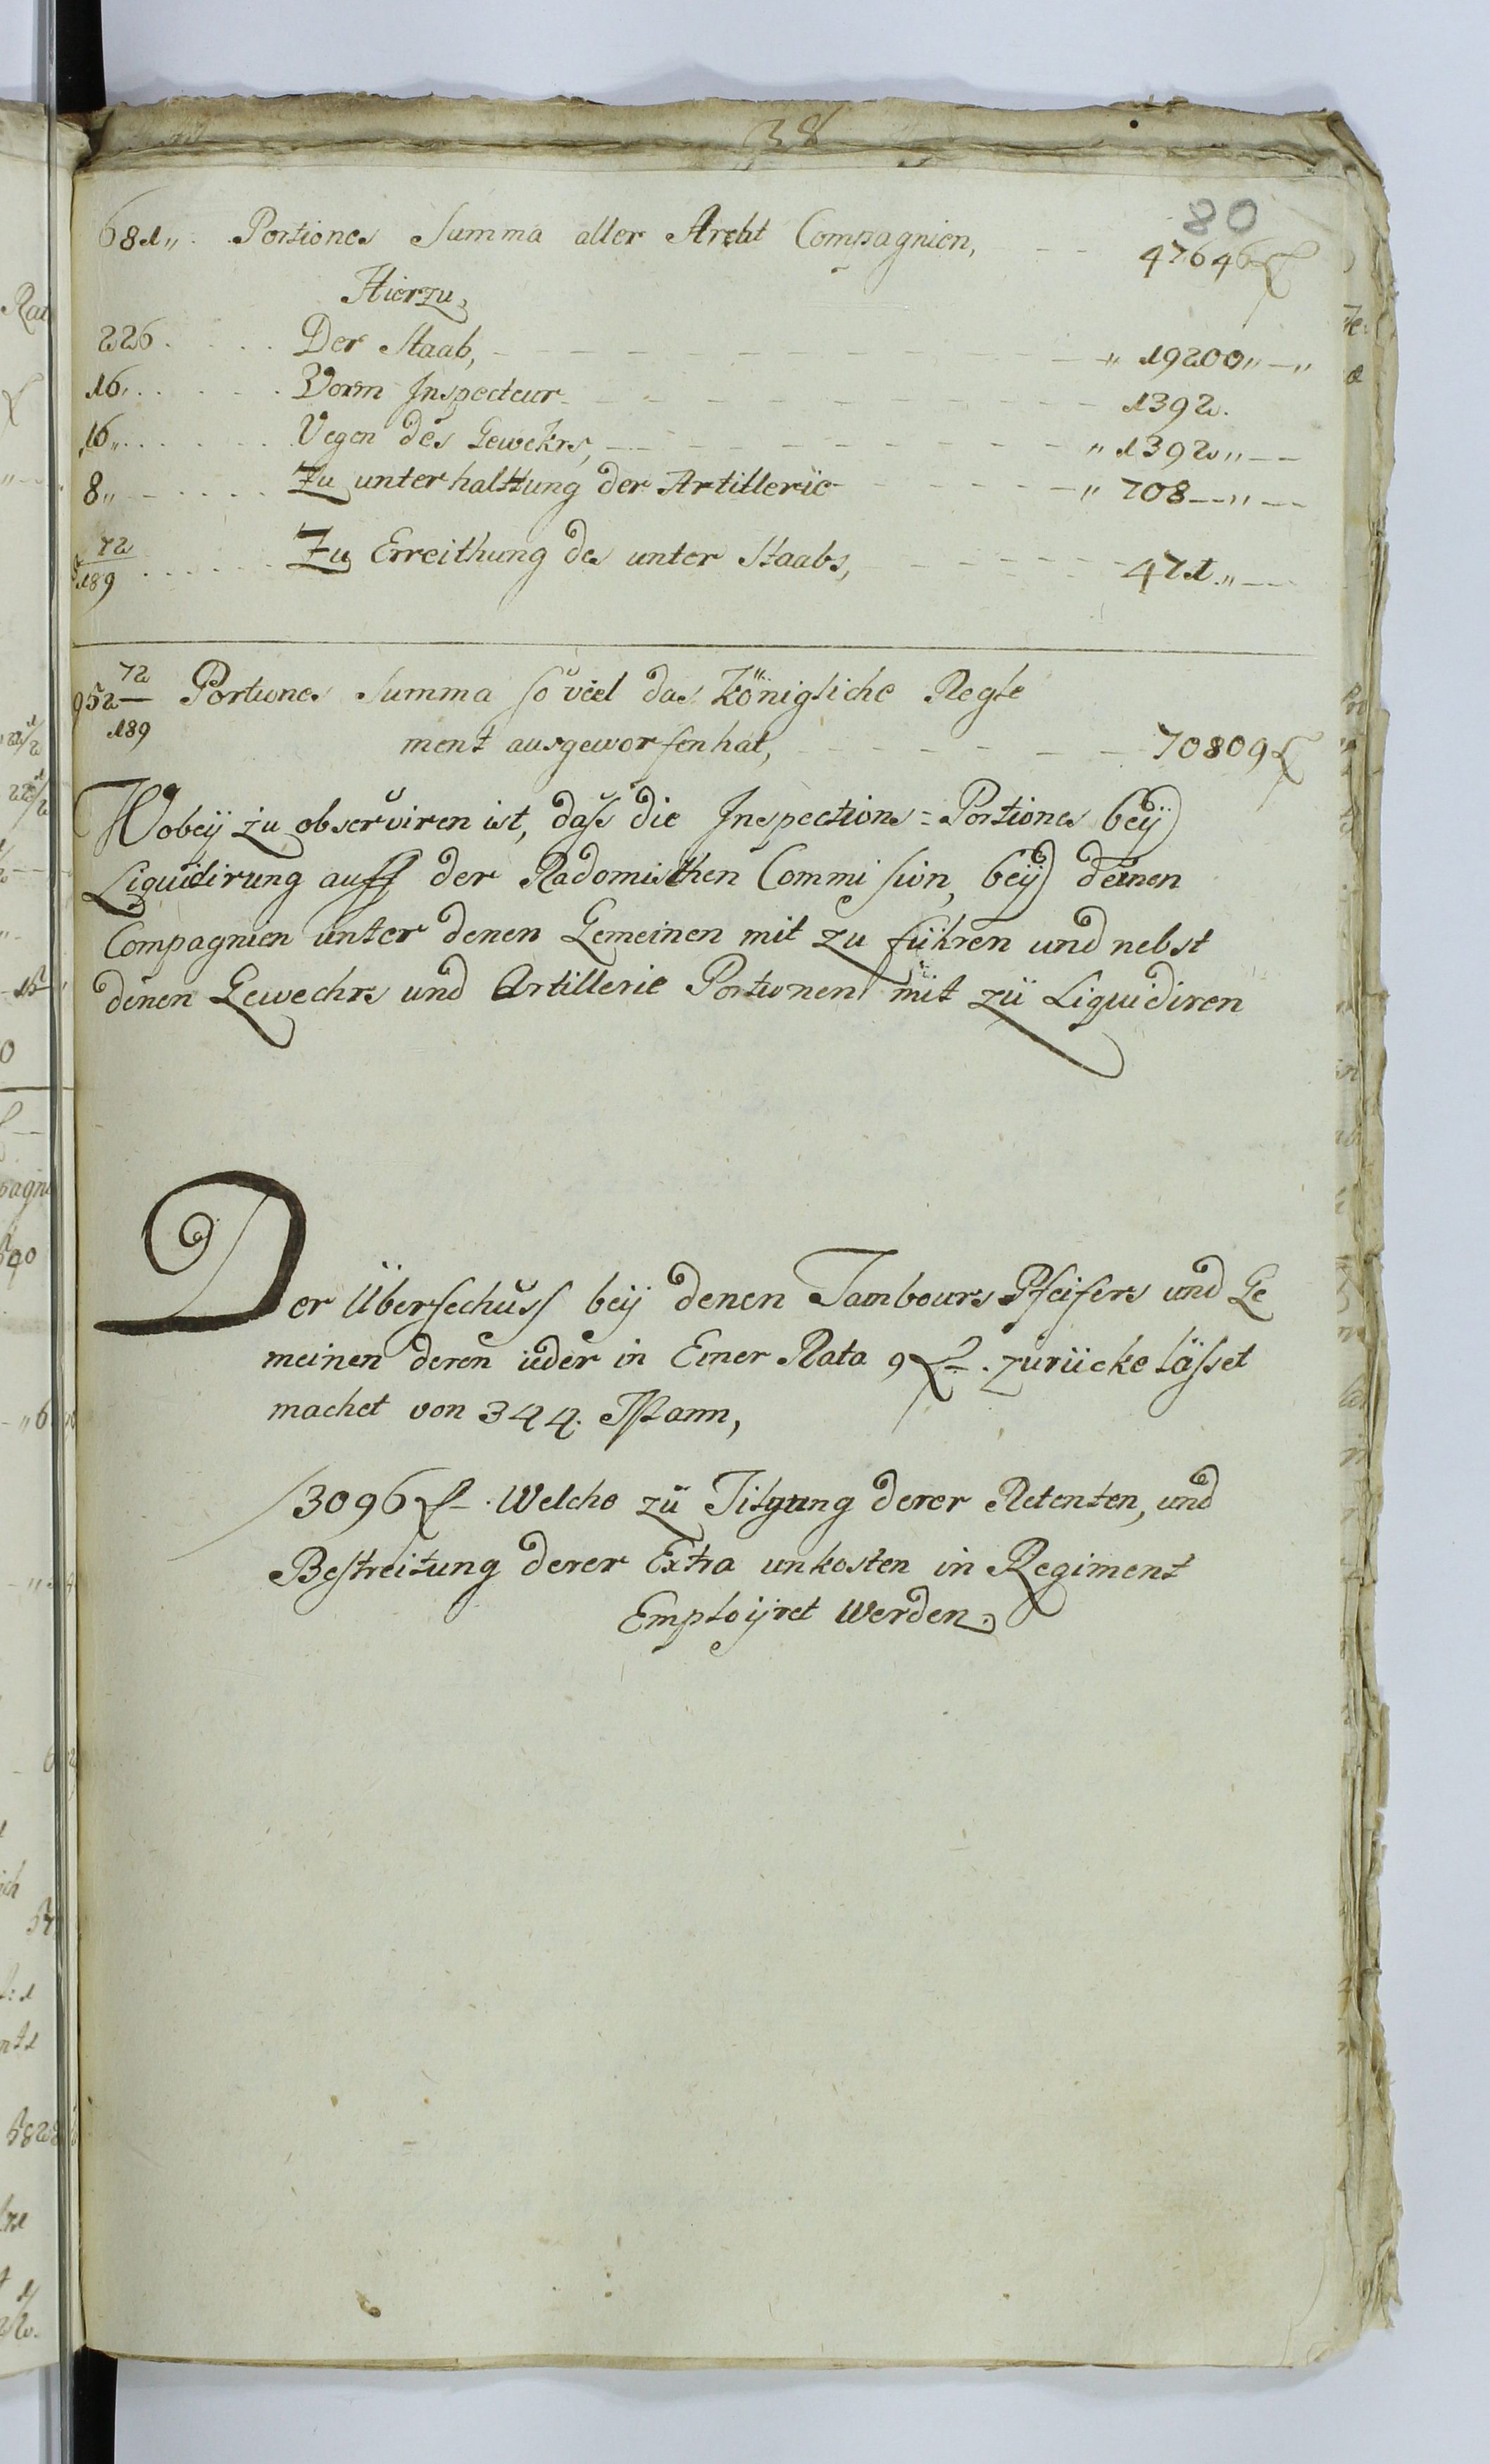 38
80
681,, Portiones Summa aller Archt Compagnien, 47646 f
Hierzu,
226 Der Staab, ,, 19200,, — ,,
16,, Vorm Inspecteur 1392.
16,, Vegen des Gewehrs, ,, 1392,, —
8,, Zu unterhaltung der Artillerie ,, 708 — ,, —
72/189 Zu Erreithung des unter Staabs, 471,, —
952 72/189 Portiones Summa so viel das Königliche Regle
ment ausgeworfen hat, 70809 f
Wobeÿ zu observiren ist, dass die Inspections = Portiones beÿ
Liquidirung auff der Radomischen Commission, beÿ denen
Compagnien unter denen Gemeinen mit zu führen und nebst
denen Gewechrs und Artillerie Portionen mit zu Liquidiren
Der Überschuss beÿ denen Tambours Pfeifers und Ge
meinen deren ieder in Einer Rata 9 f. zurücke lässet
machet von 344. Mann,
3096 f. Welche zu Tilgung derer Retenten, und
Bestreitung derer Extra unkosten in Regiment
Emploÿret Werden.